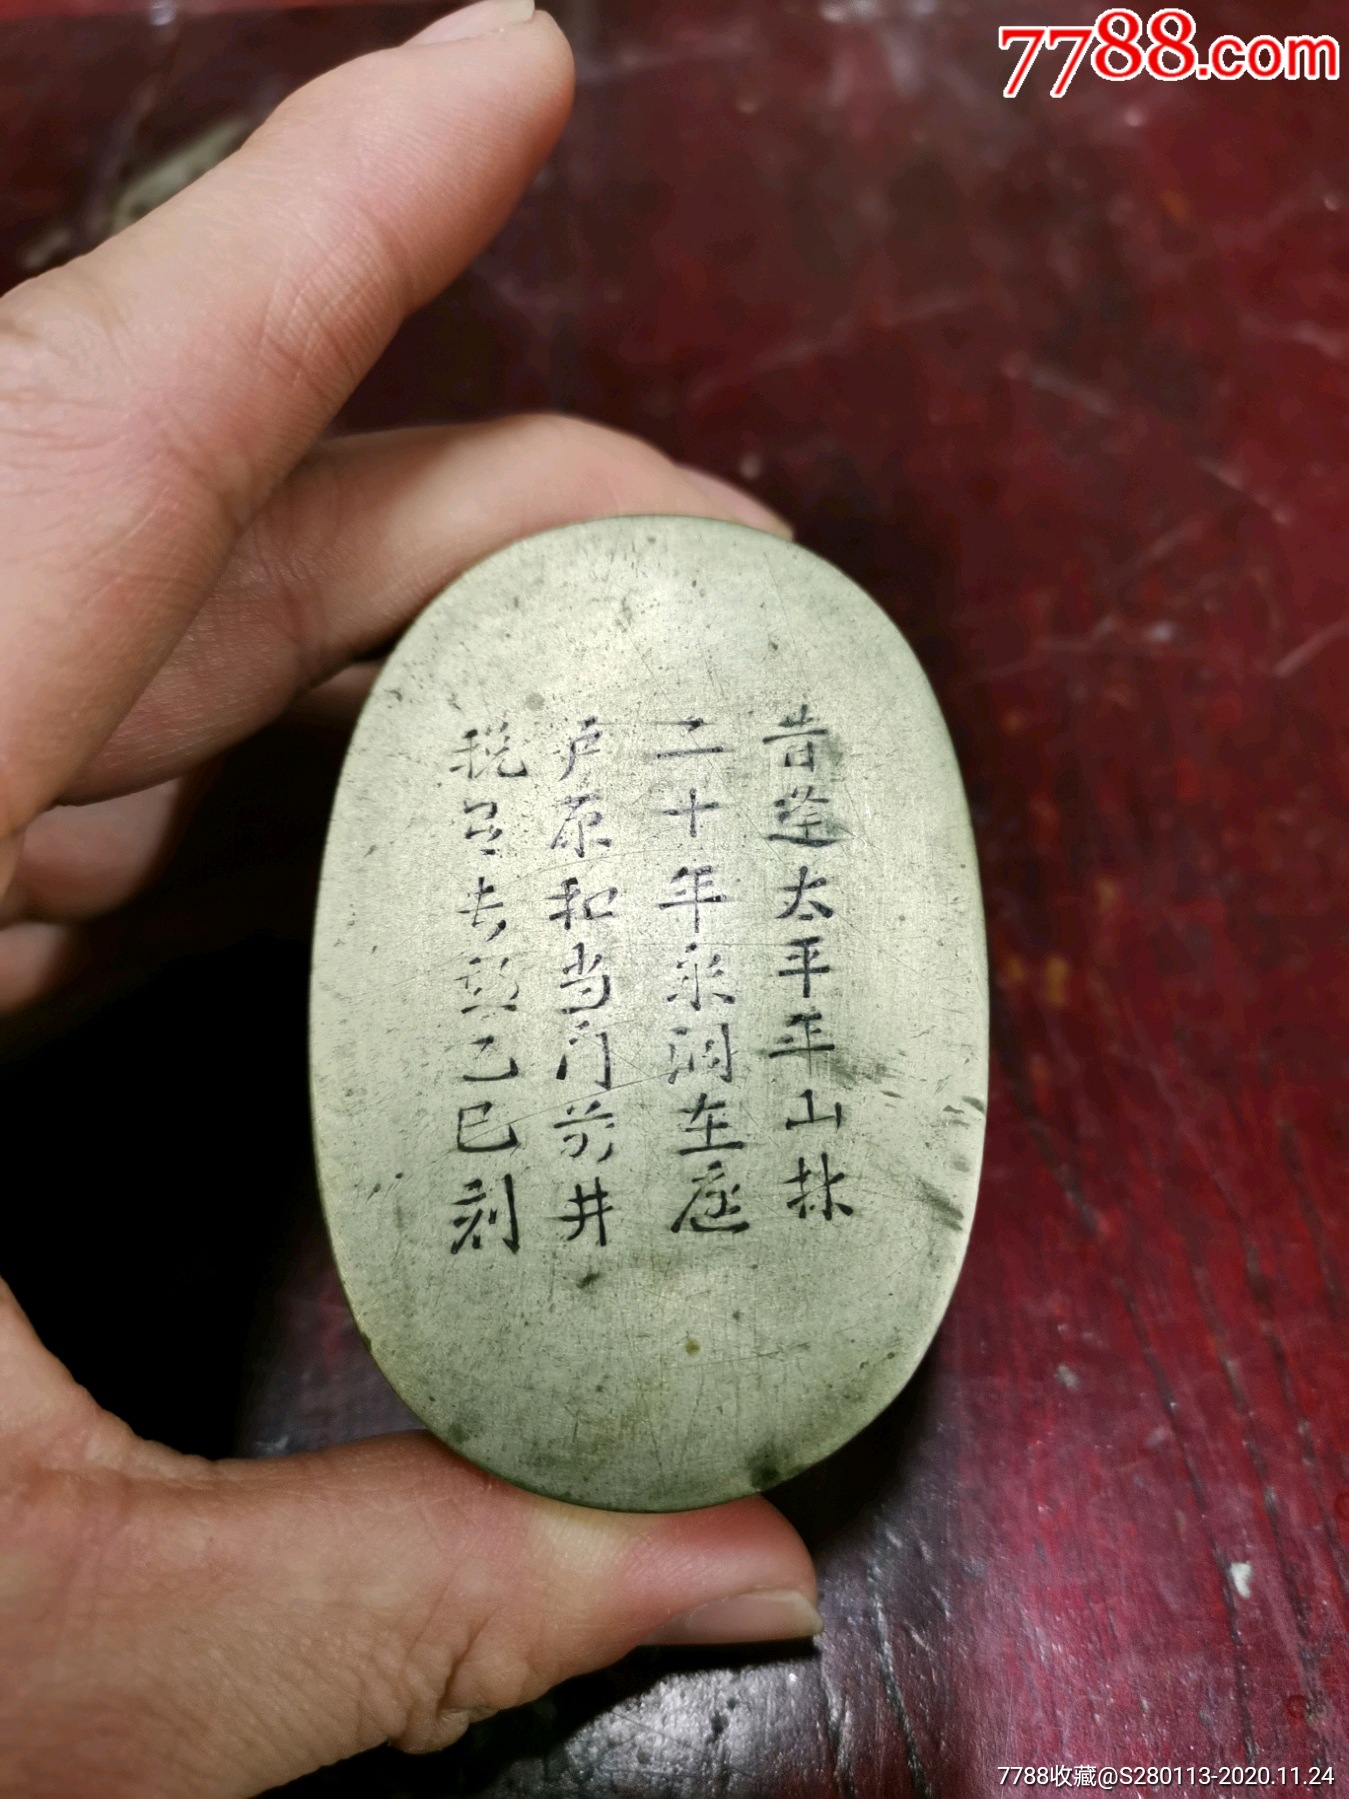 7788.com
昔逢太平年山林
二十年来洞在庭
户原和当门前井
税吕去 己巳刻
7788收藏@S280113-2020.11.24